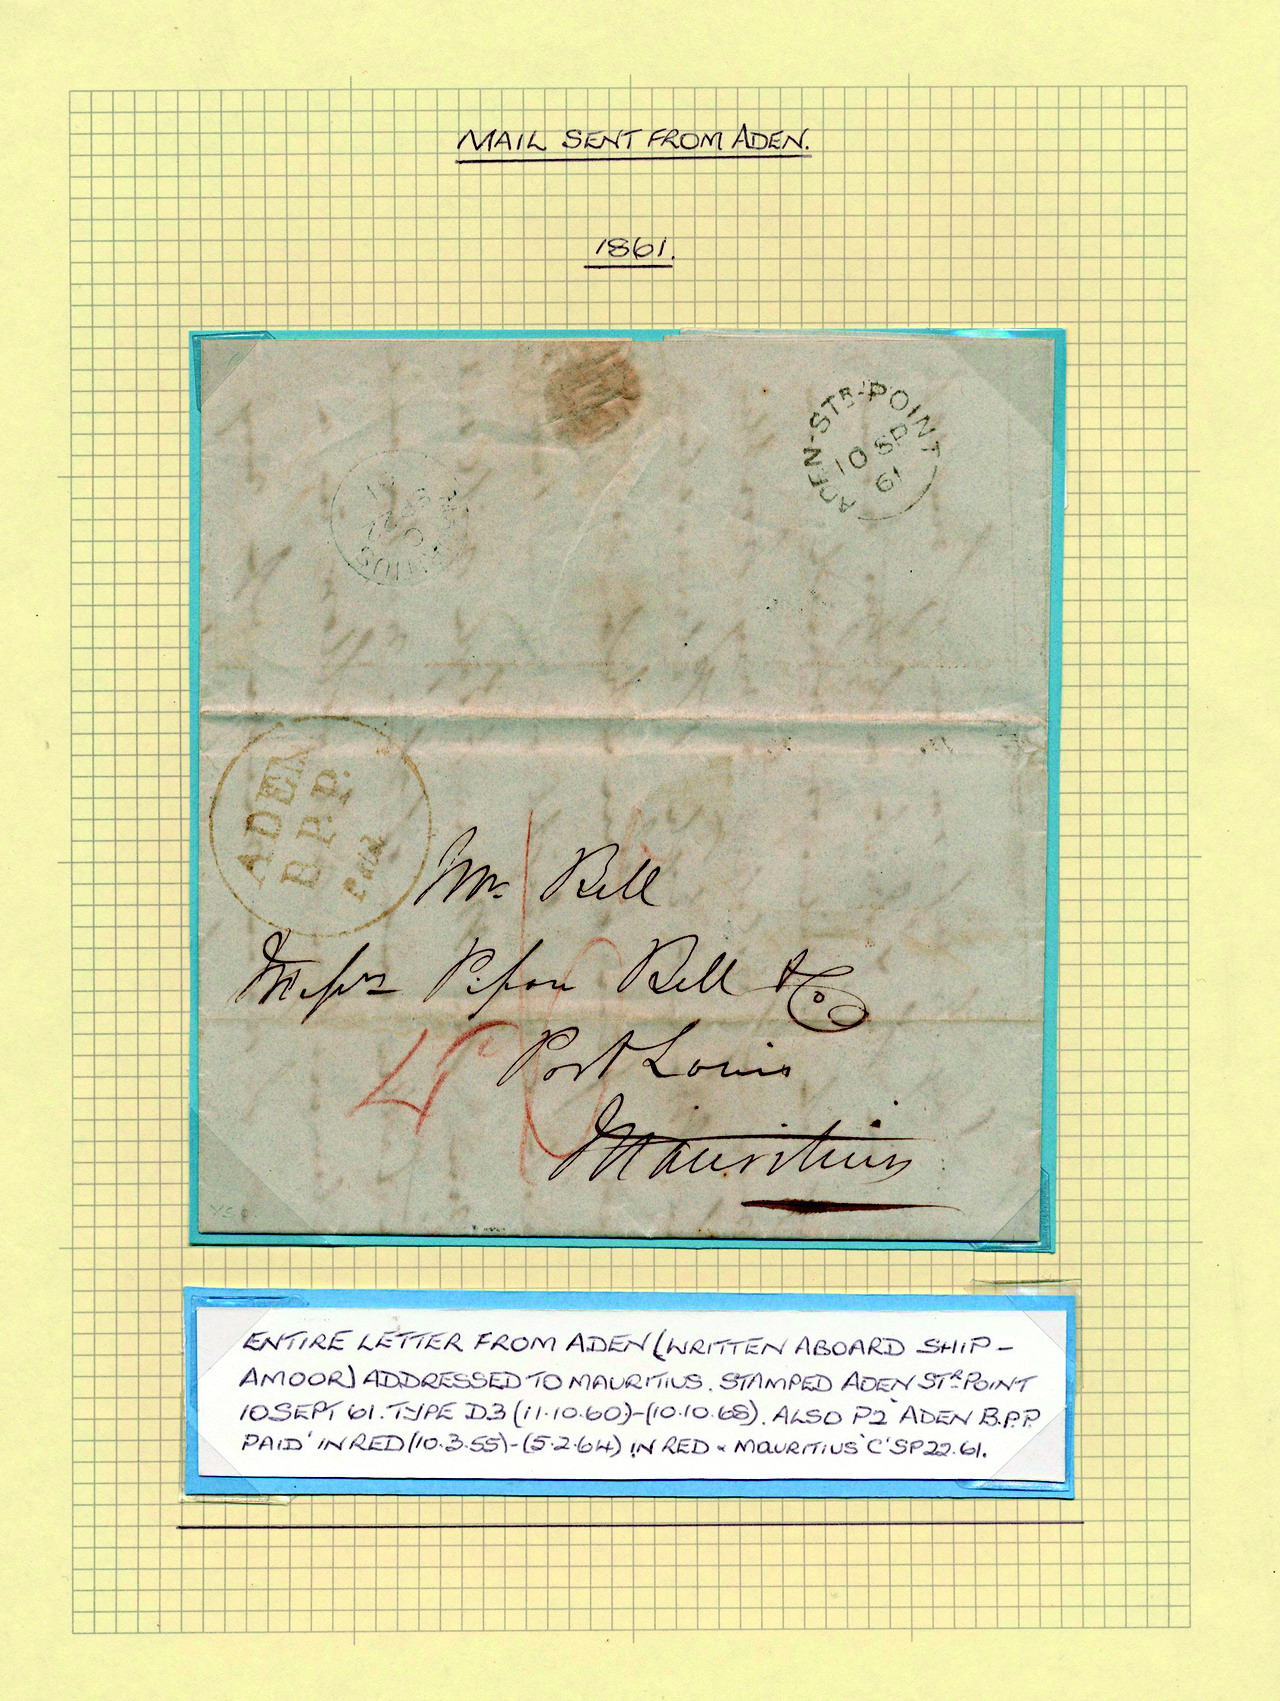 MAIL SENT FROM ADEN.
1861.
ADEN-STR-POINT
10 SP
61
ADEN
B.P.P.
PAID
Mr. Bell
Messrs Pipon Bell & Co
Port Louis
Mauritius
ENTIRE LETTER FROM ADEN (WRITTEN ABOARD SHIP -
AMOOR) ADDRESSED TO MAURITIUS. STAMPED ADEN STR POINT
10 SEPT '61. TYPE D3 (11.10.60)-(10.10.68). ALSO P2 'ADEN B.P.P.
PAID' IN RED (10.3.55)-(5.2.64) IN RED & MAURITIUS 'C' SP 22.61.